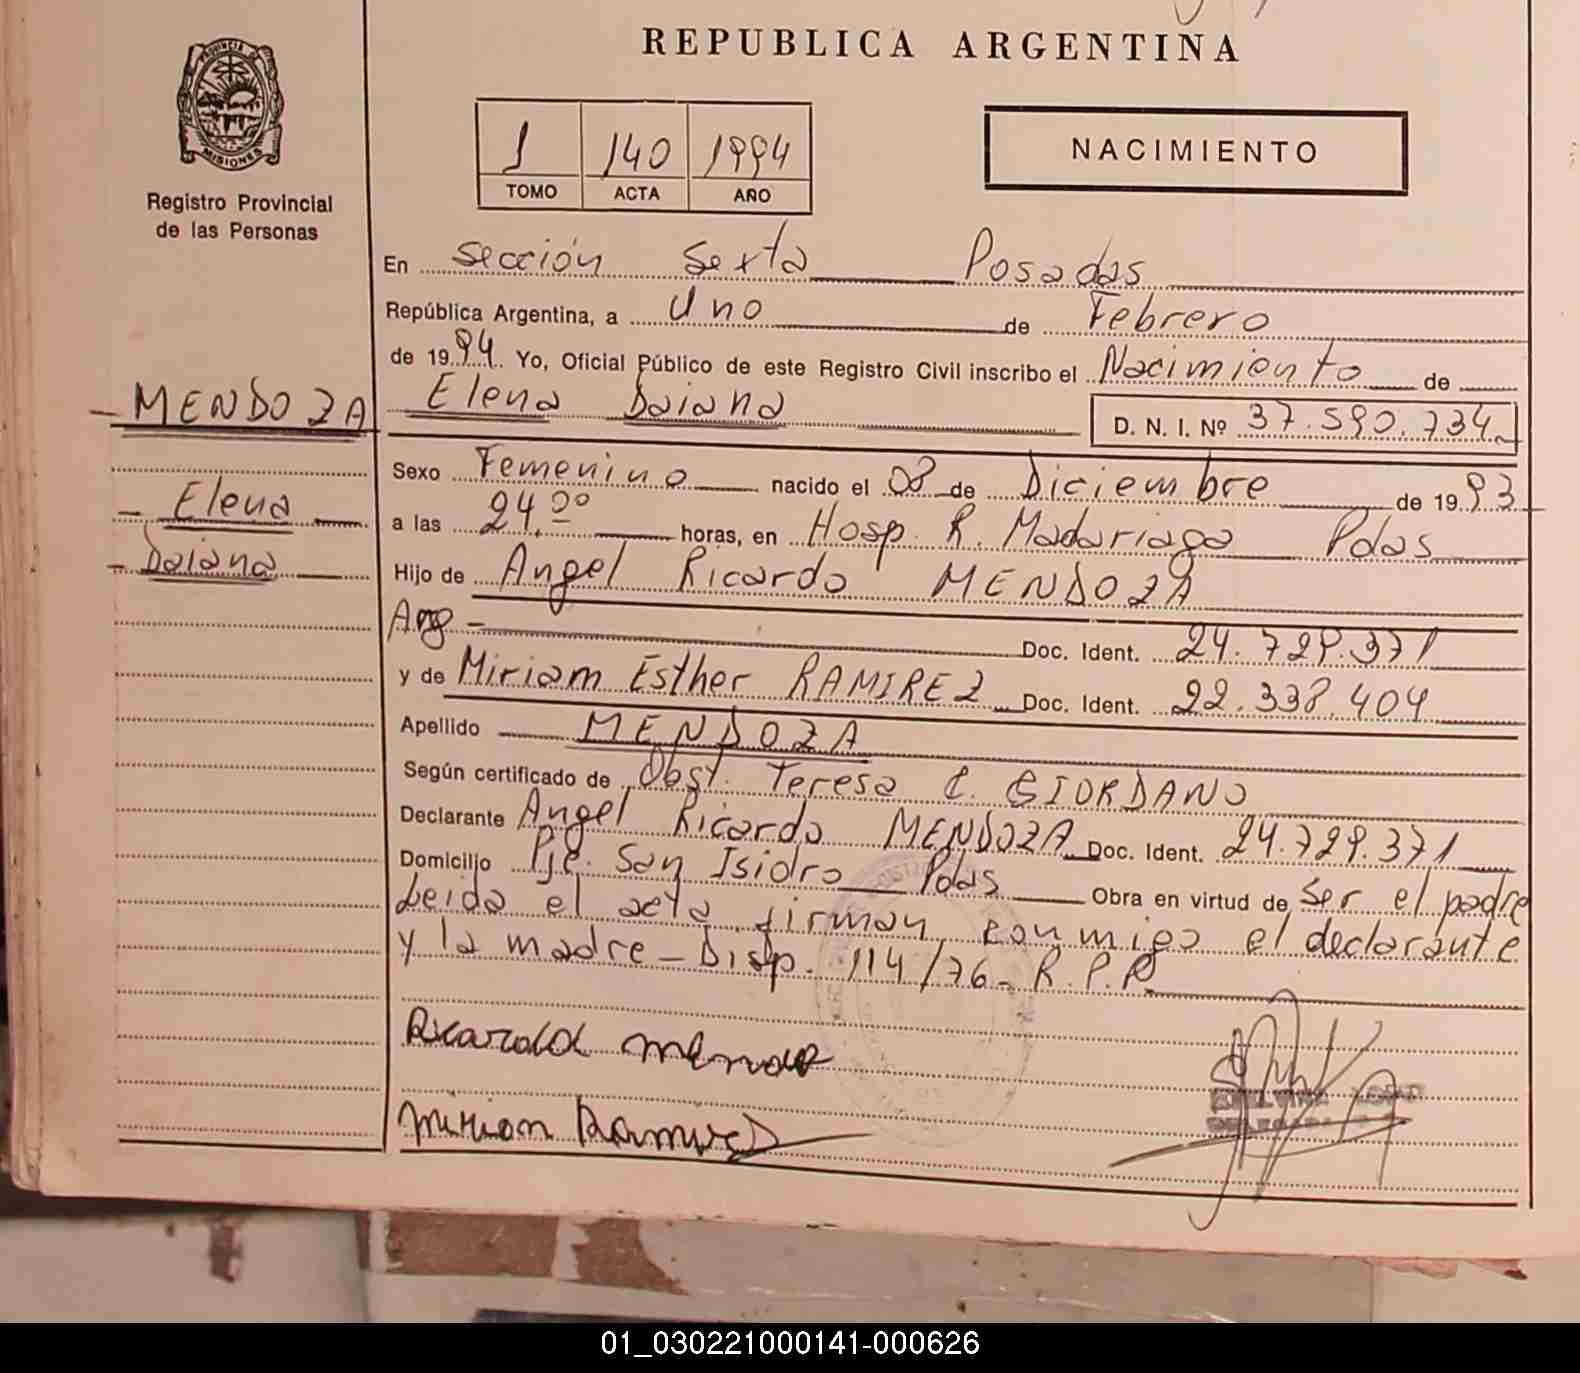 REPUBLICA ARGENTINA
PROVINCIA DE
MISIONES
Registro Provincial
de las Personas
1 140 1994
TOMO ACTA AÑO
NACIMIENTO
En Sección Sexta Posadas
República Argentina, a Uno de Febrero
de 1994. Yo, Oficial Público de este Registro Civil inscribo el Nacimiento de
MENDOZA Elena Daiana D. N. I. Nº 37.590.734
Sexo Femenino nacido el 08 de Diciembre de 1993
Elena
a las 24.00 horas, en Hosp. R. Madariaga Pdas
Daiana
Hijo de Angel Ricardo MENDOZA
Ang - Doc. Ident. 24.729.371
y de Miriam Esther RAMIREZ Doc. Ident. 22.338.404
Apellido MENDOZA
Según certificado de Obst. Teresa C. GIORDANO
Declarante Angel Ricardo MENDOZA Doc. Ident. 24.729.371
Domicilio Pje. San Isidro Pdas Obra en virtud de Ser el padre
Leida el acta firman conmigo el declarante
y la madre - Disp. 114/76 - R.P.P.
Miriam Ramirez
01_030221000141-000626